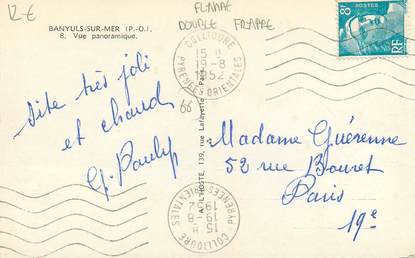 12 €
FLAMME
DOUBLE FRAPPE
BANYULS-SUR-MER (P.-O.)
8. Vue panoramique.
COLLIOURE
15 H
19-8
1952
PYRÉNÉES-ORIENTALES
8F
66
Site très joli
et chaud
G. Pauly
A. L'HOSTE, 139, rue Lafayette - Paris
Madame Guérenne
52 rue Bouret
Paris
19e
COLLIOURE
15 H
19-8
1952
PYRÉNÉES-ORIENTALES